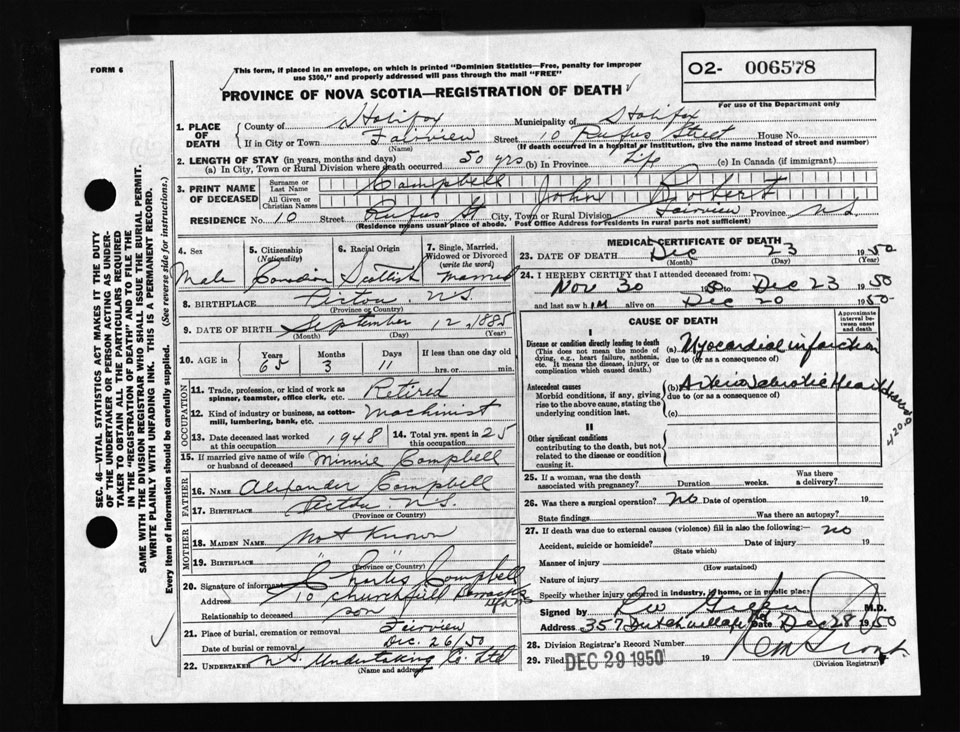 FORM 6
This form, if placed in an envelope, on which is printed "Dominion Statistics—Free, penalty for improper
use $300," and properly addressed will pass through the mail "FREE"
O2- 006578
For use of the Department only
PROVINCE OF NOVA SCOTIA—REGISTRATION OF DEATH
1. PLACE OF DEATH County of Halifax Municipality of Halifax
If in City or Town Fairview Street 10 Rufus Street House No.
(Name) (If death occurred in a hospital or institution, give the name instead of street and number)
2. LENGTH OF STAY (in years, months and days)
(a) In City, Town or Rural Division where death occurred 50 yrs (b) In Province Life (c) In Canada (if immigrant)
3. PRINT NAME OF DECEASED Surname or Last Name Campbell
All Given or Christian Names John Robert
RESIDENCE No. 10 Street Rufus St City, Town or Rural Division Fairview Province N.S.
(Residence means usual place of abode. Post Office Address for residents in rural parts not sufficient)
4. Sex Male
5. Citizenship (Nationality)
6. Racial Origin Scottish
7. Single, Married, Widowed or Divorced (write the word) Married
8. BIRTHPLACE Pictou N.S.
(Province or Country)
9. DATE OF BIRTH September 12, 1885
(Month) (Day) (Year)
10. AGE in Years 65 Months 3 Days 11 If less than one day old hrs. or min.
OCCUPATION
11. Trade, profession, or kind of work as spinner, teamster, office clerk, etc. Retired
12. Kind of industry or business, as cotton-mill, lumbering, bank, etc. Machinist
13. Date deceased last worked at this occupation 1948
14. Total yrs. spent in this occupation 25
15. If married give name of wife or husband of deceased Minnie Campbell
FATHER
16. NAME Alexander Campbell
17. BIRTHPLACE Pictou N.S.
(Province or Country)
MOTHER
18. MAIDEN NAME Not Known
19. BIRTHPLACE " "
(Province or Country)
20. Signature of informant Charles Campbell
Address 10 Churchfield Barracks
Relationship to deceased son
21. Place of burial, cremation or removal Fairview
Date of burial or removal Dec. 26/50
22. UNDERTAKER N.S. Undertaking Co. Ltd
(Name and address)
MEDICAL CERTIFICATE OF DEATH
23. DATE OF DEATH Dec 23 1950
(Month) (Day) (Year)
24. I HEREBY CERTIFY that I attended deceased from:
Nov 30 to Dec 23 1950
and last saw him alive on Dec 20 1950
CAUSE OF DEATH
Approximate interval between onset and death
I
Disease or condition directly leading to death
(This does not mean the mode of dying, e.g., heart failure, asthenia, etc. It means the disease, injury, or complication which caused death.)
(a) Myocardial infarction
due to (or as a consequence of)
Antecedent causes
Morbid conditions, if any, giving rise to the above cause, stating the underlying condition last.
(b) Arteriosclerotic Heart disease
due to (or as a consequence of)
(c)
420.0
II
Other significant conditions
contributing to the death, but not related to the disease or condition causing it.
25. If a woman, was the death associated with pregnancy? Duration weeks. Was there a delivery?
26. Was there a surgical operation? No Date of operation 19
State findings Was there an autopsy?
27. If death was due to external causes (violence) fill in also the following:— no
Accident, suicide or homicide? Date of injury 19
(State which)
Manner of injury
(How sustained)
Nature of injury
Specify whether injury occurred in industry, in home, or in public place
Signed by M.D.
Address 357 Dutch Village Rd Date Dec 28 1950
28. Division Registrar's Record Number
29. Filed DEC 29 1950 19
(Division Registrar)
SEC. 46—VITAL STATISTICS ACT MAKES IT THE DUTY
OF THE UNDERTAKER OR PERSON ACTING AS UNDER-
TAKER TO OBTAIN ALL THE PARTICULARS REQUIRED
IN THE "REGISTRATION OF DEATH" AND TO FILE THE
SAME WITH THE DIVISION REGISTRAR WHO SHALL ISSUE THE BURIAL PERMIT.
WRITE PLAINLY WITH UNFADING INK. THIS IS A PERMANENT RECORD.
Every item of Information should be carefully supplied. (See reverse side for instructions.)